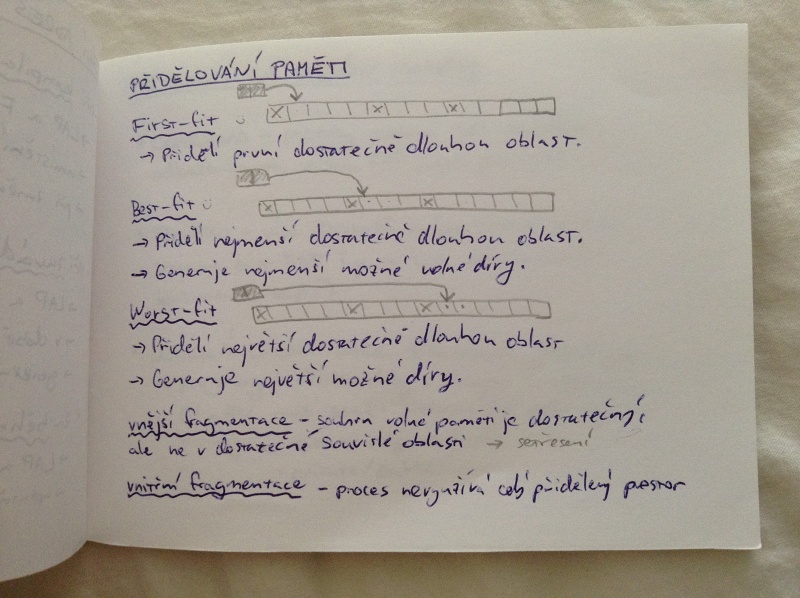 PŘIDĚLOVÁNÍ PAMĚTI
First-fit
→ Přidělí první dostatečně dlouhou oblast.
Best-fit
→ Přidělí nejmenší dostatečně dlouhou oblast.
→ Generuje nejmenší možné volné díry.
Worst-fit
→ Přidělí největší dostatečně dlouhou oblast
→ Generuje největší možné díry.
vnější fragmentace – souhrn volné paměti je dostatečný,
ale ne v dostatečně souvislé oblasti → setřesení
vnitřní fragmentace – proces nevyužívá celý přidělený prostor